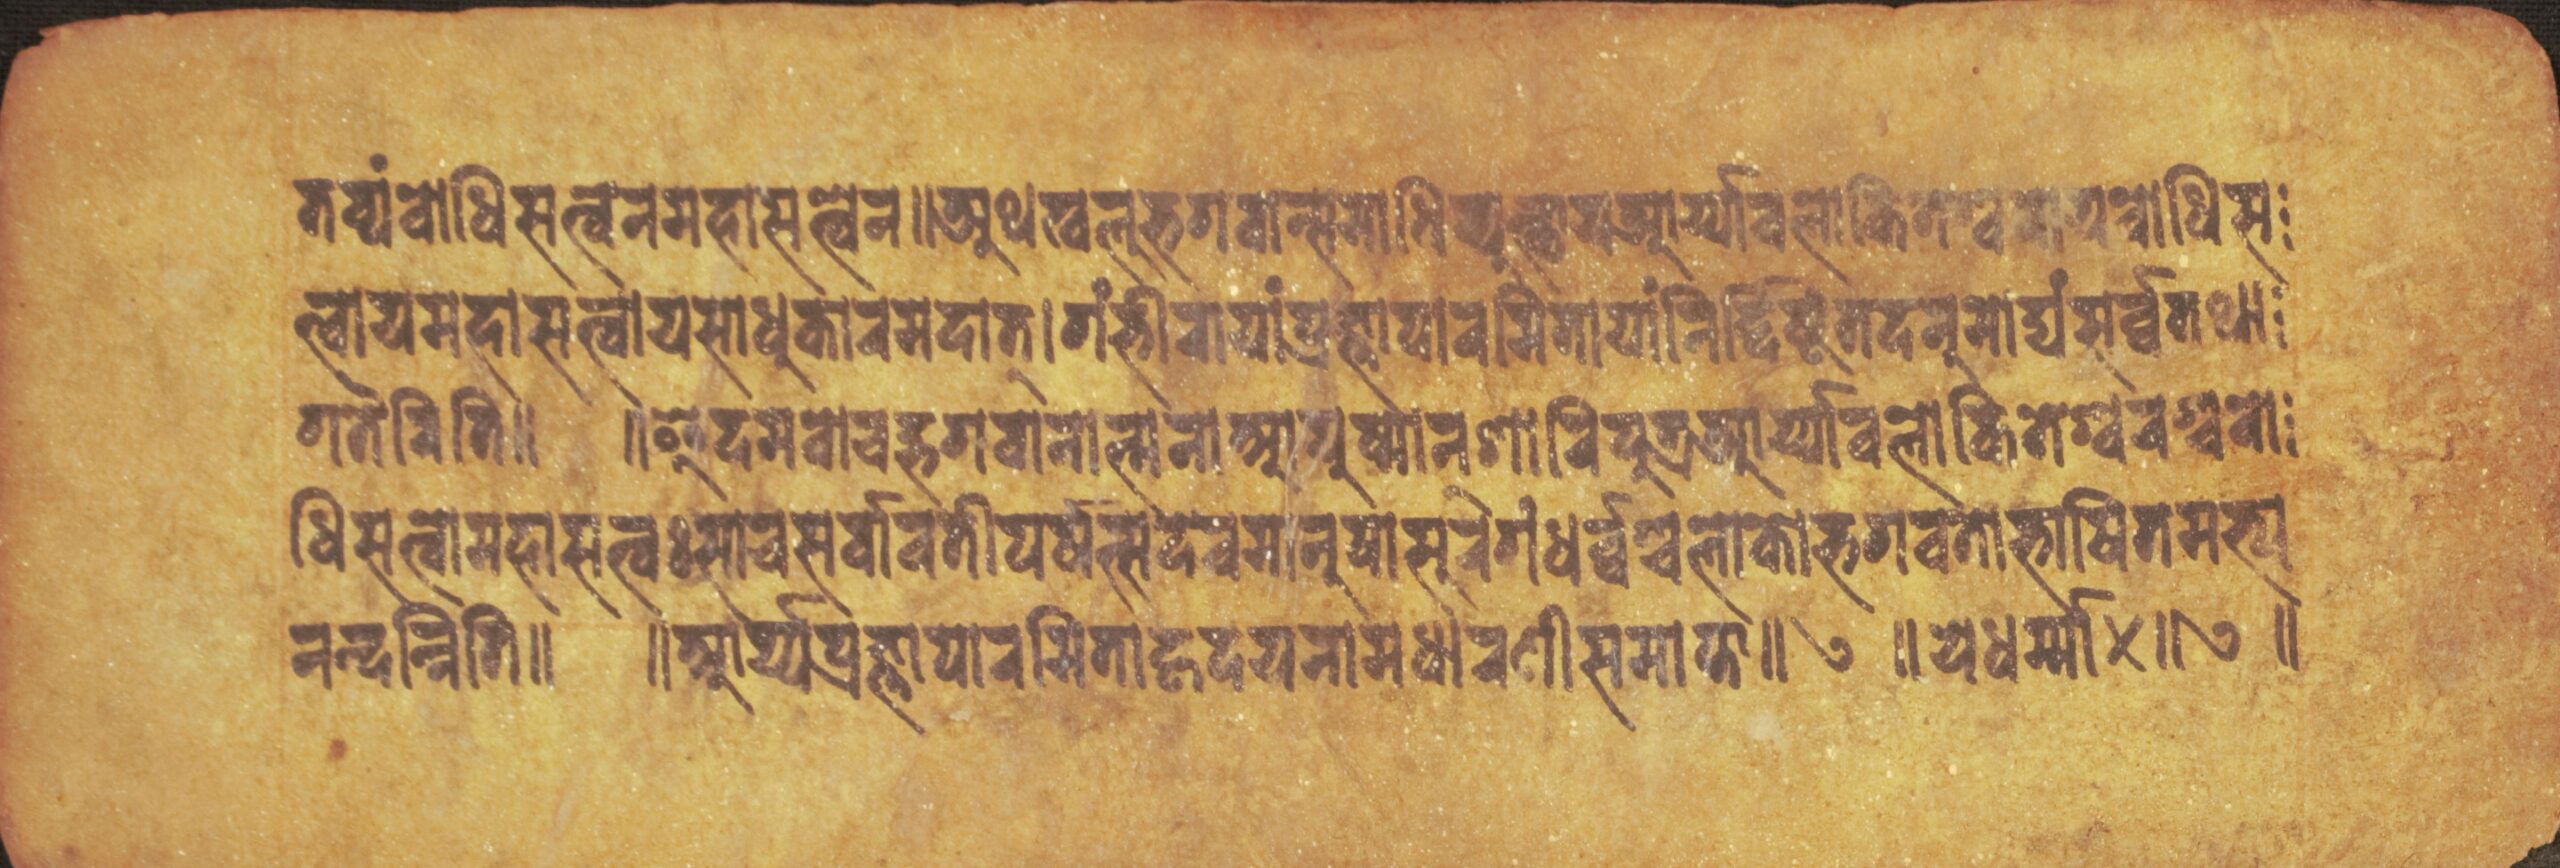 तव्यंबोधिसत्वेनमहासत्वेन॥अथखलुभगवान्समाधिव्युत्थायआर्य्यावलोकितेश्वरायबोधिसः
त्वायमहासत्वायसाधुकारमदात्।गंभीरायांप्रज्ञापारमितायांनिर्द्दिष्टंतदनुमोद्यंसर्व्वतथाः
गतैरिति॥ ॥इदमवोचद्भगवानात्मनाआयुष्मानशारिपुत्रआर्य्यावलोकितेश्वरश्चबोः
धिसत्वोमहासत्वःसाचसर्वावतीपर्षत्सदेवमानुषासुरगंधर्व्वश्चलोकोभगवतोभाषितमभ्य
नन्दन्निति॥ ॥आर्य्यप्रज्ञापारमिताहृदयनामधारणीसमाप्ता॥ ॥येधर्म्मा॥ ॥